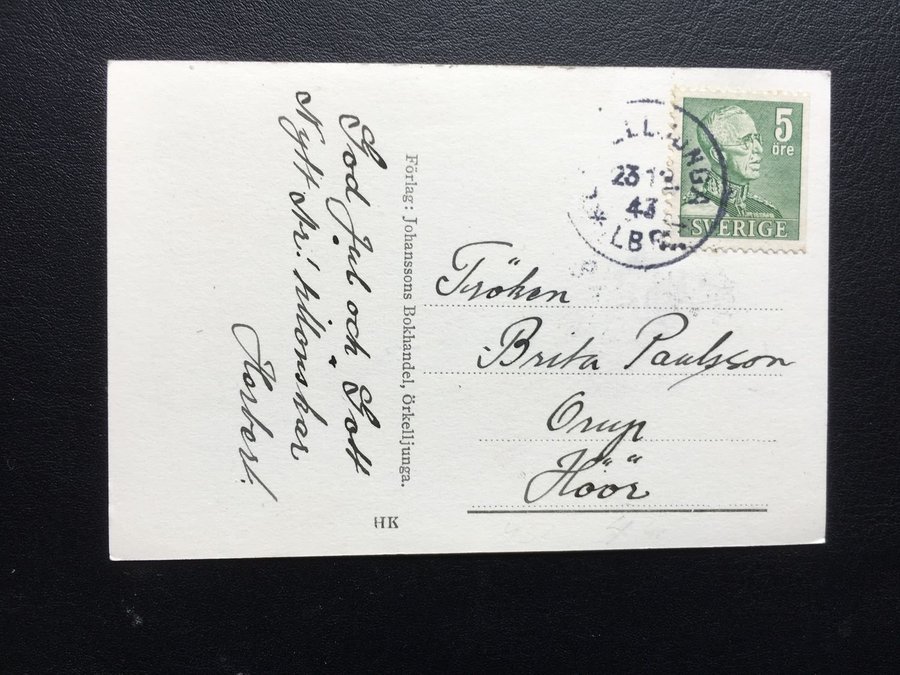 God Jul och Gott
Nytt År! tillönskar
Herbert.
Förlag: Johanssons Bokhandel, Örkelljunga.
HK
5
öre
SVERIGE
ELLJUNGA
23 12
43
LBR
Fröken
Brita Paulsson
Orup
Höör